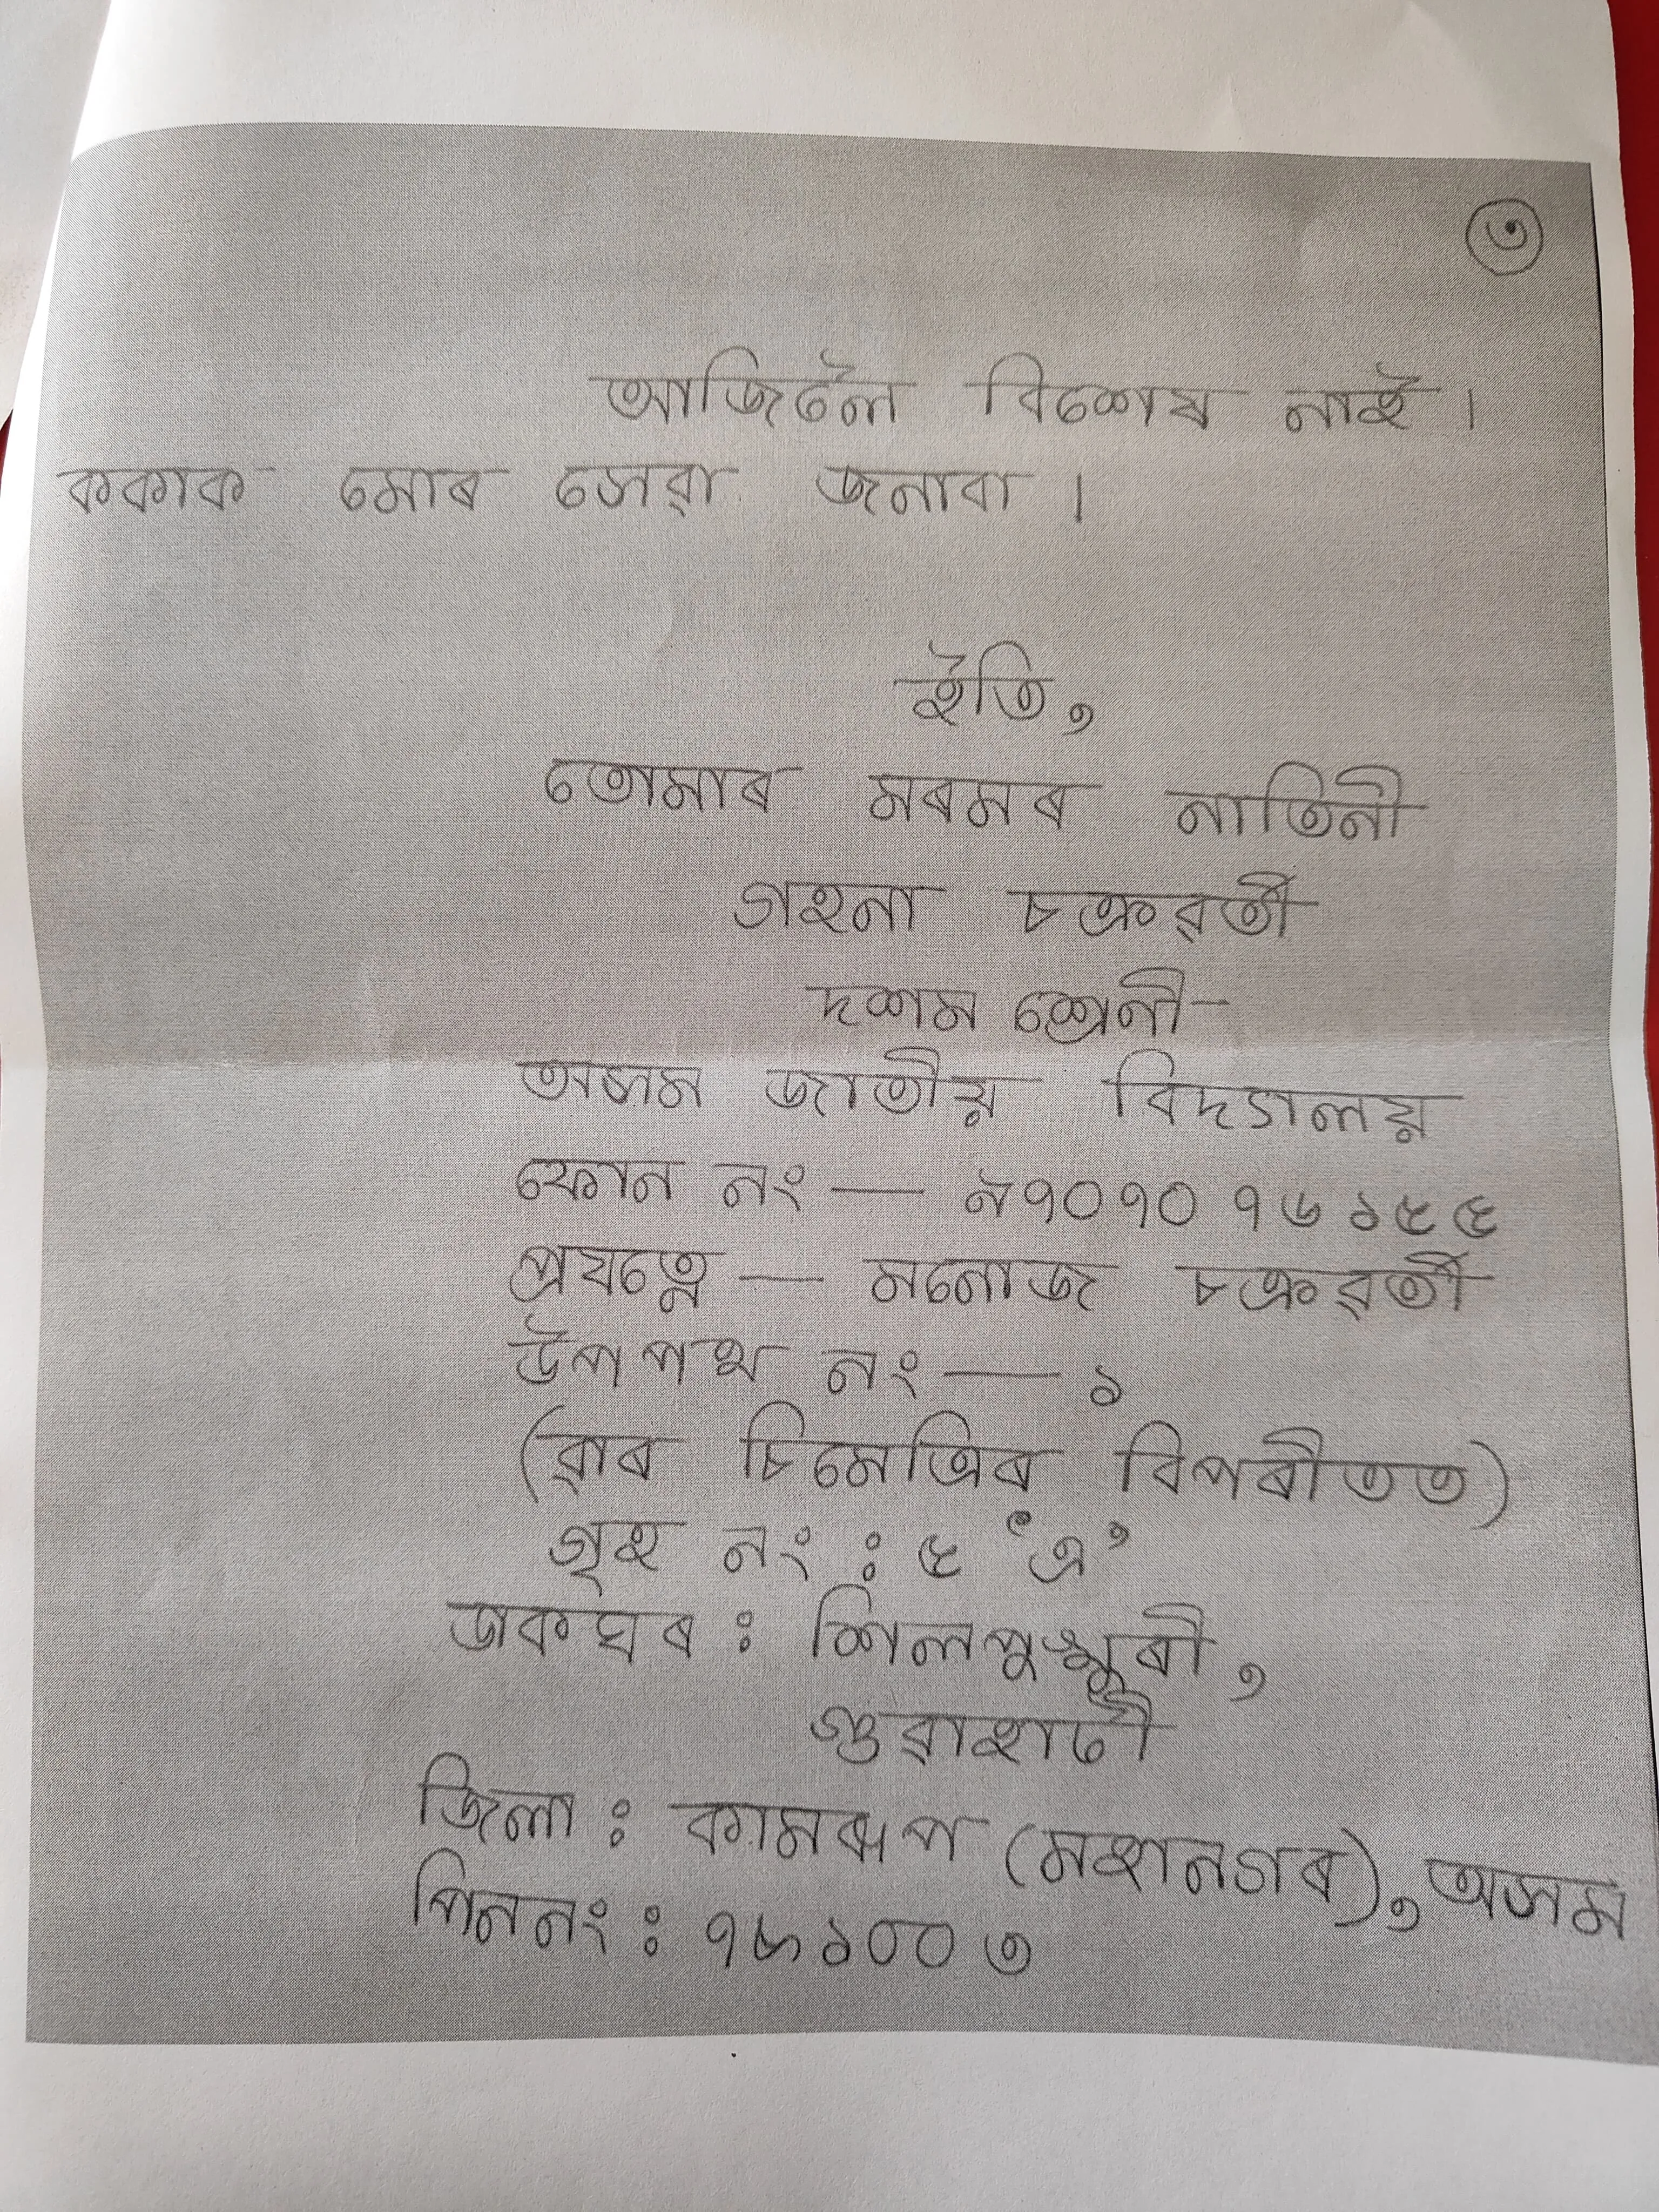 ৩
আজিলৈ বিশেষ নাই ।
ককাক মোৰ সেৱা জনাবা ।
ইতি,
তোমাৰ মৰমৰ নাতিনী
গহনা চক্ৰৱৰ্তী
দশম শ্ৰেণী
অসম জাতীয় বিদ্যালয়
ফোন নং — ৯৭০৭০ ৭৬১৫৫
প্ৰযত্নে — মনোজ চক্ৰৱৰ্তী
উপপথ নং — ১
(ৱাৰ চিমেট্ৰিৰ বিপৰীতত)
গৃহ নং : ৫ 'এ'
ডাকঘৰ : শিলপুখুৰী,
গুৱাহাটী
জিলা : কামৰূপ (মহানগৰ), অসম
পিননং : ৭৮১০০৩